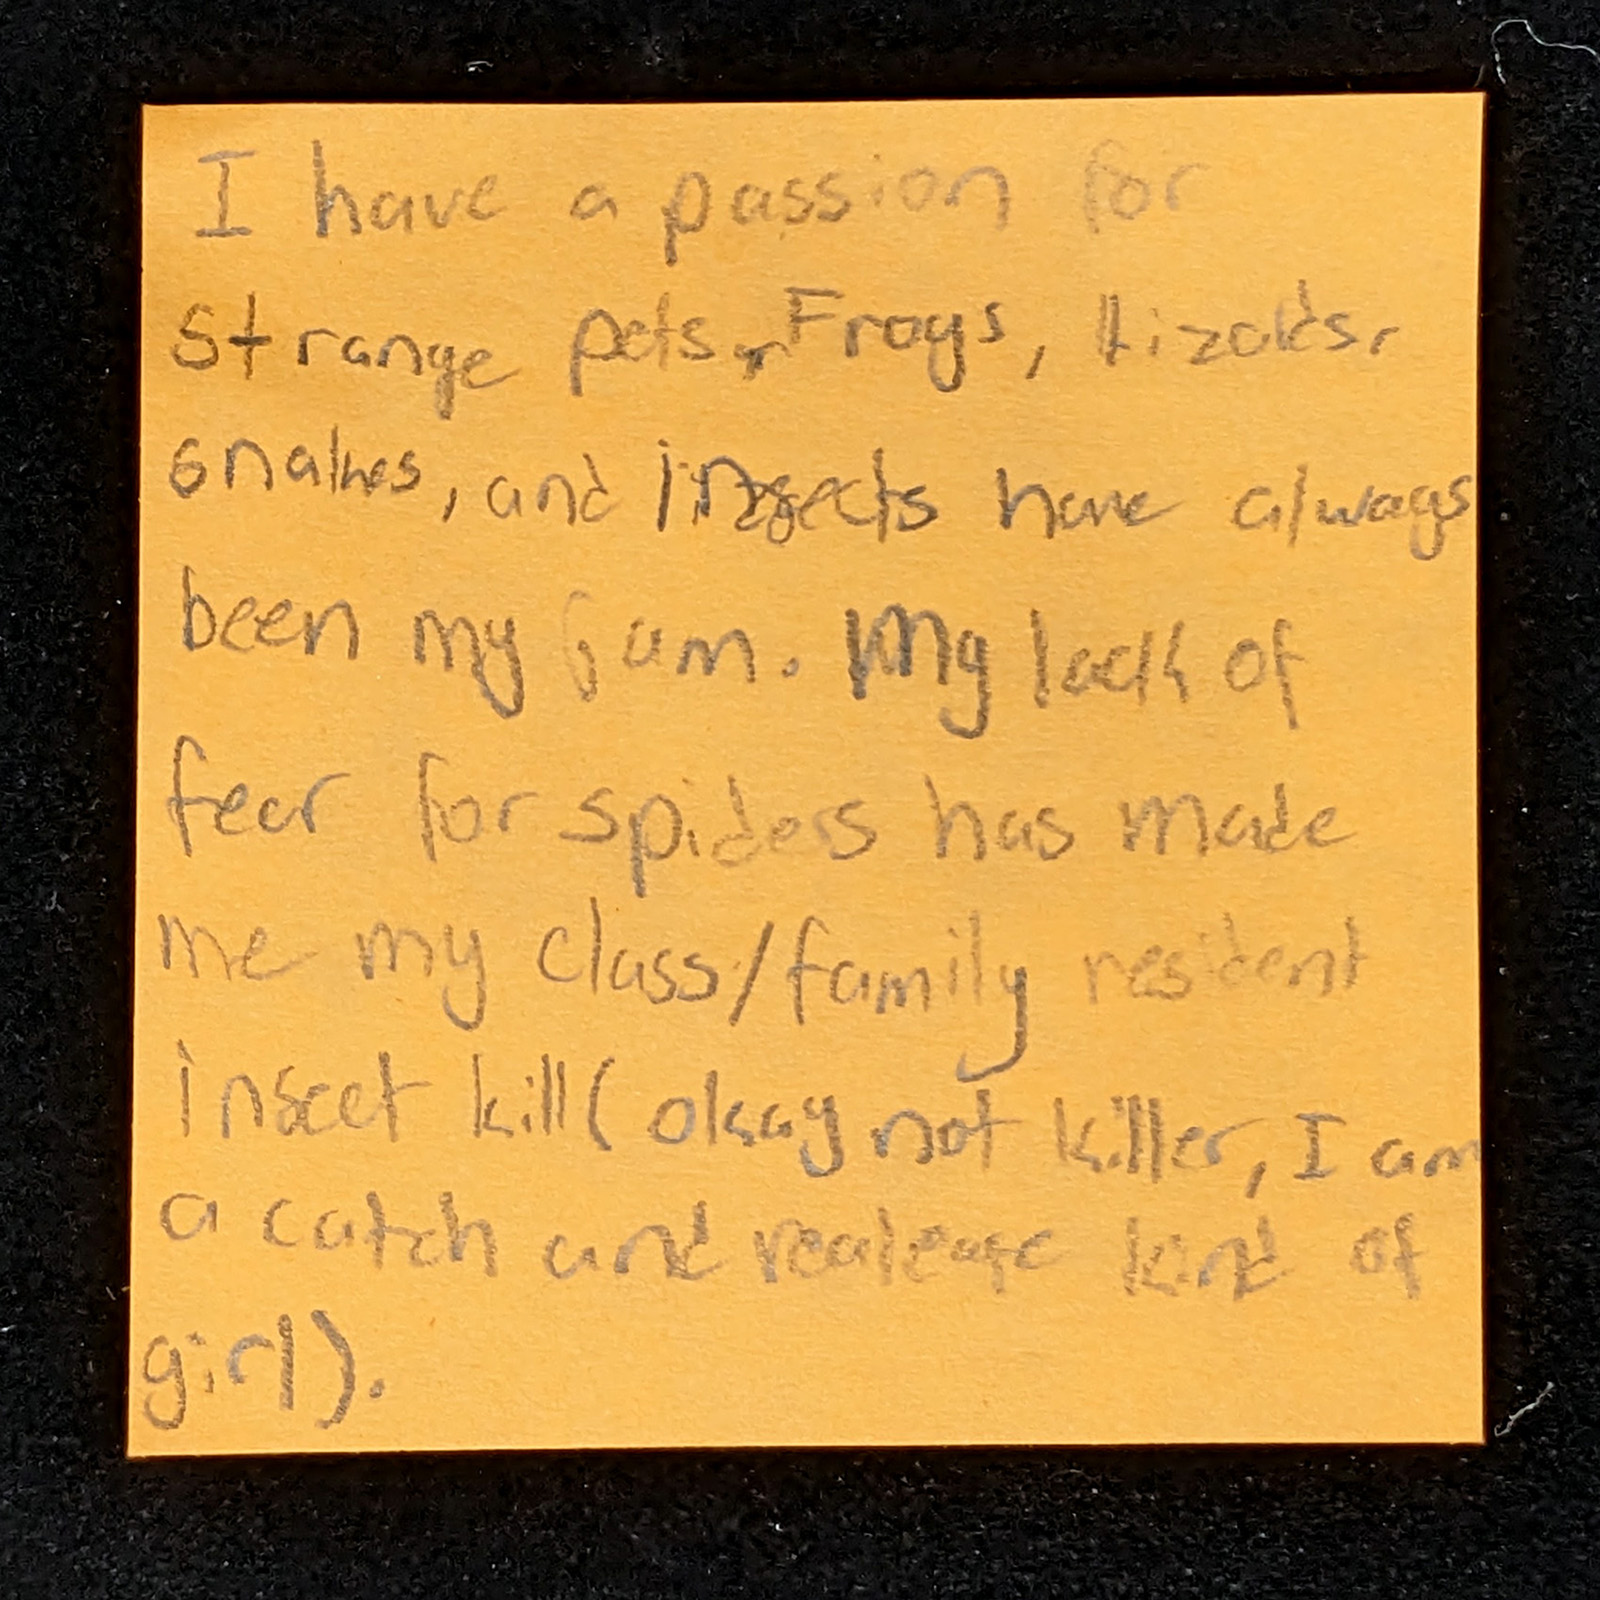 I have a passion for
strange pets. Frogs, lizards,
snakes, and insects have always
been my jam. My lack of
fear for spiders has made
me my class/family resident
insect kill( okay not killer, I am
a catch and realease kind of
girl).